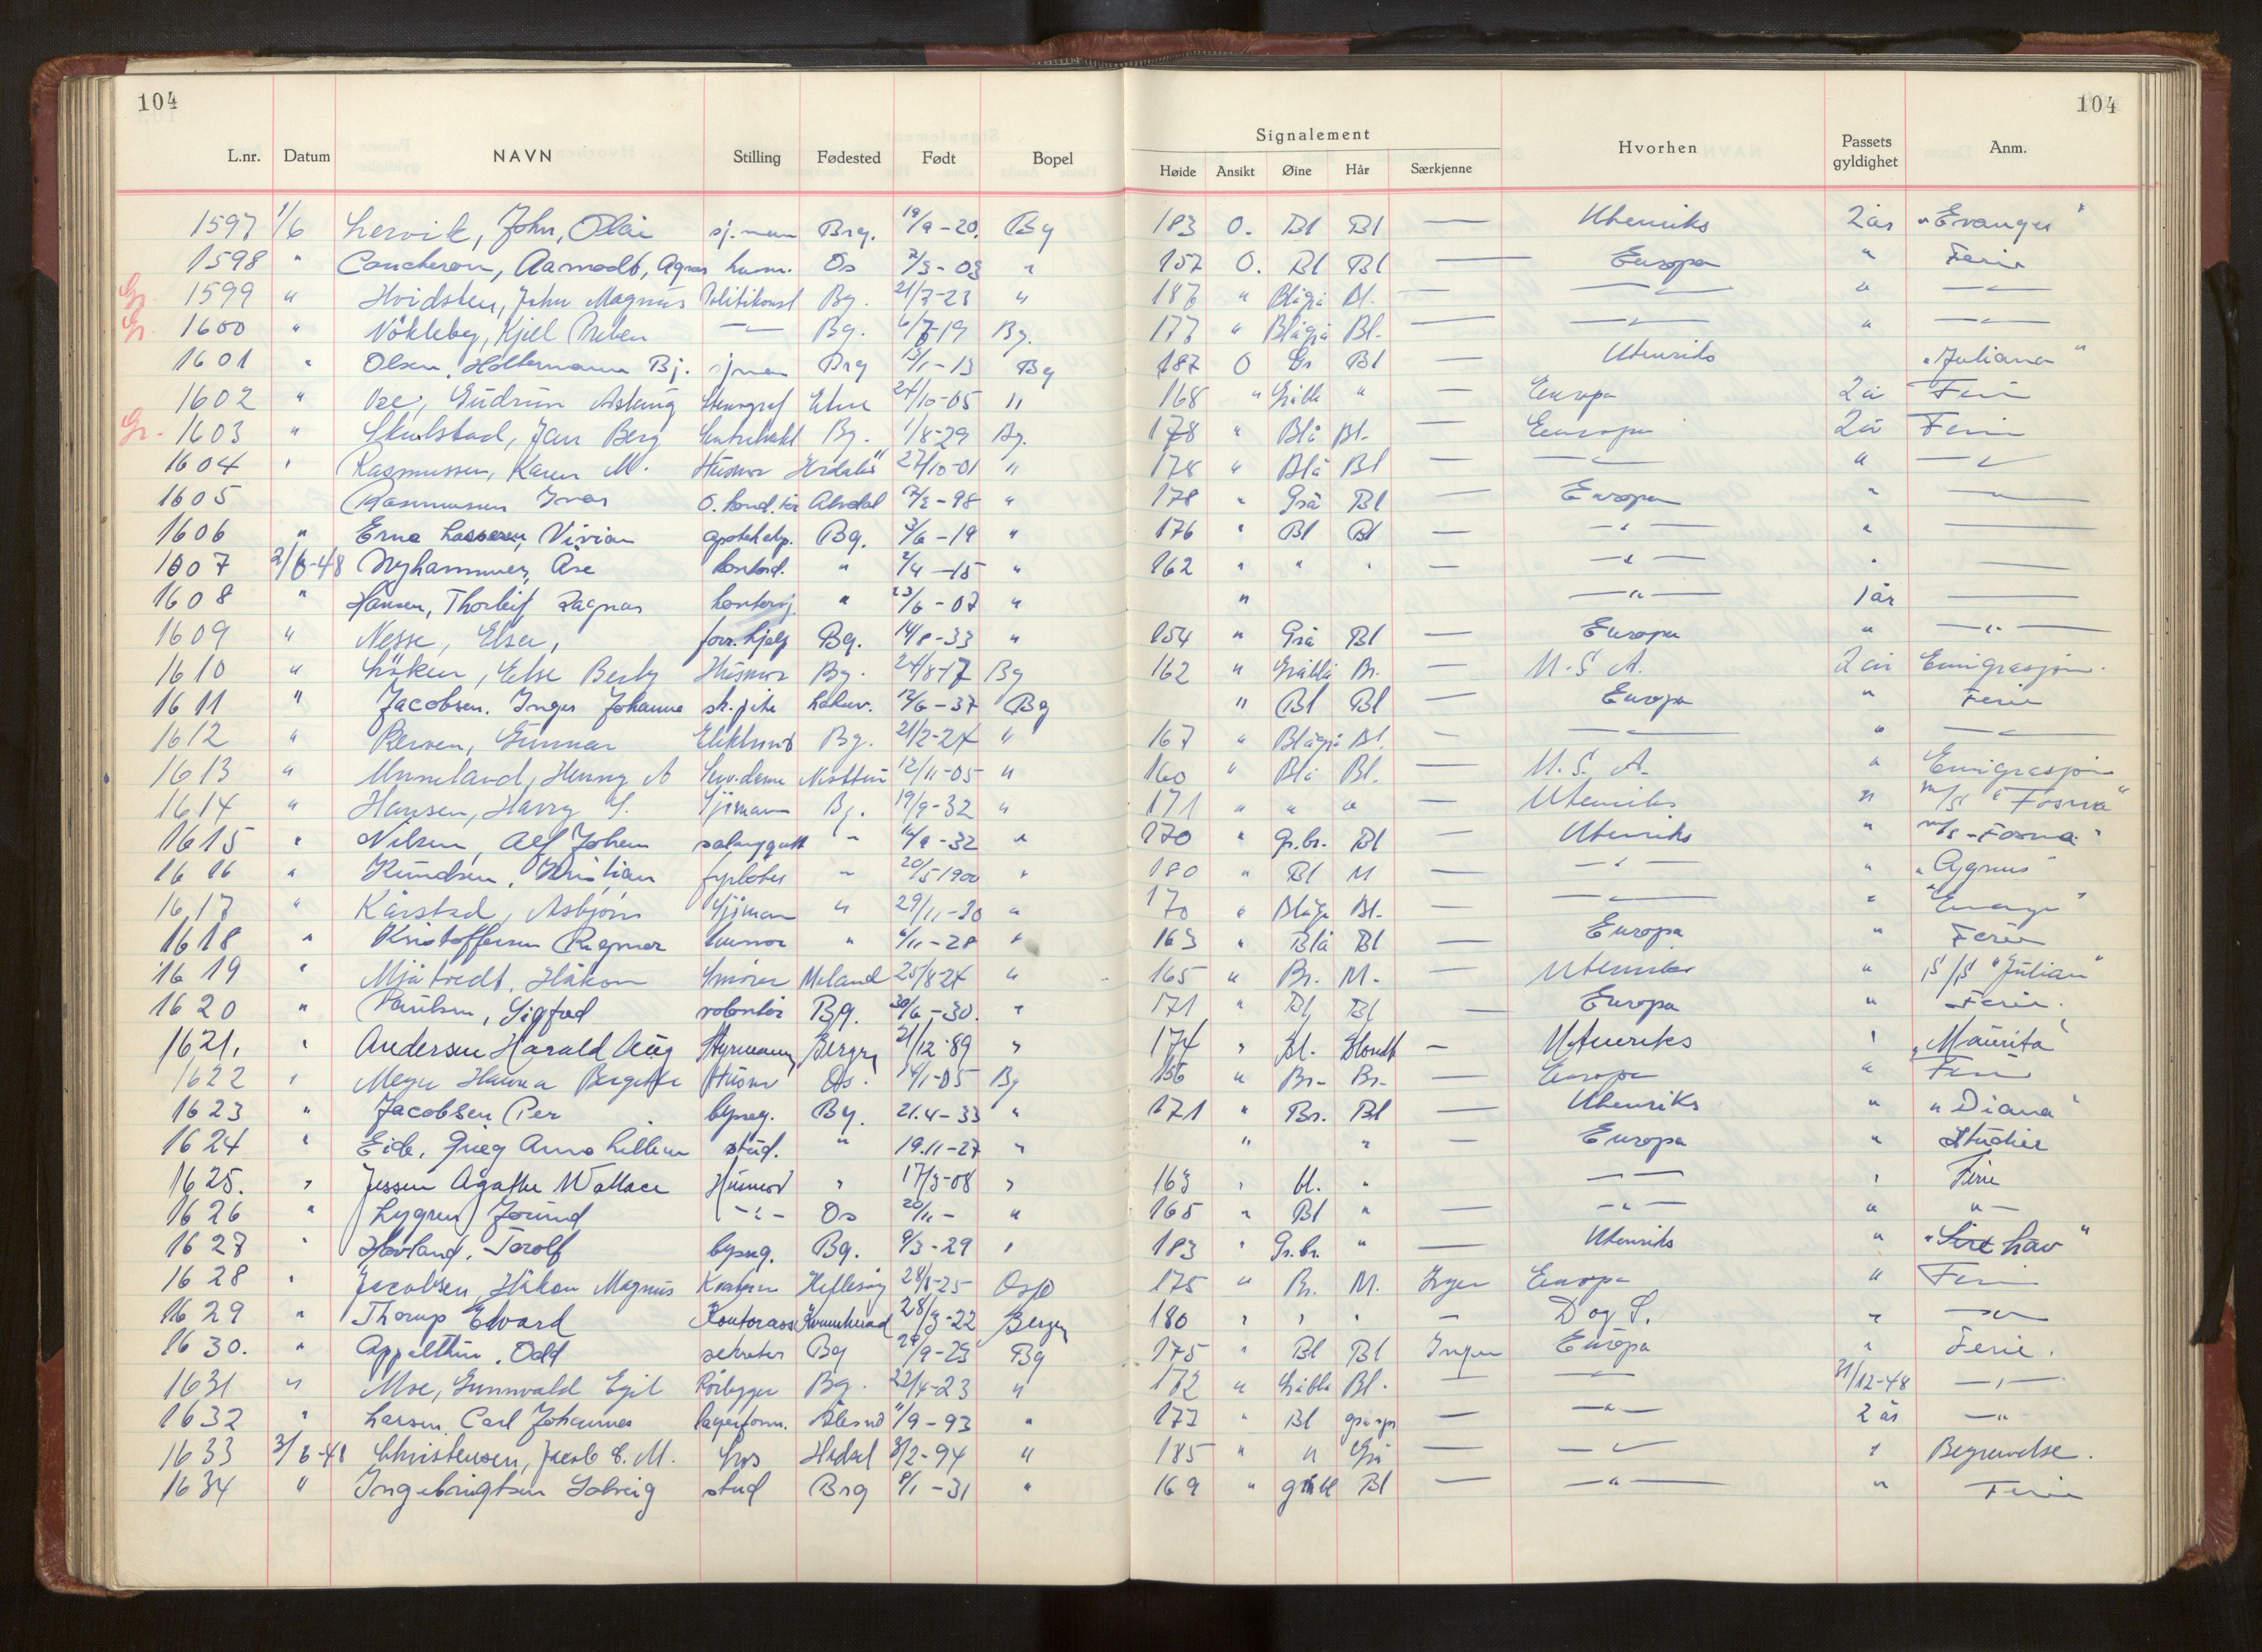 104
104
L.nr. Datum NAVN Stilling Fødested Født Bopel Signalement Høide Ansikt Øine Hår Særkjenne Hvorhen Passets gyldighet Anm.
1597 1/6 Lervik, John, Olai sj.man Brg. 19/9-20. Bg 183 O. Bl Bl — Utenriks 2 år "Evanger"
1598 " Coucheron, Aamodt, Agnes husm. Os 7/3-03 " 157 O. Bl Bl — Europa " Ferie
Gr. 1599 " Hvidsten, John Magnus Politikonst Bg. 21/7-23 " 187 " Blågrå Bl. — —"— " —"—
Gr. 1600 " Nökleby, Kjell Preben —"— Bg. 6/7-19 Bg. 177 " Blågrå Bl. — —"— " —"—
1601 " Olsen, Holtermann Bj. sjman Brg 13/1-13 Bg 187 O Gr Bl — Utenriks "Juliana"
1602 " Ose, Gudrun Aslaug Stenograf Etne 24/10-05 " 168 " Gråblå " — Europa 2 år Ferie
Gr. 1603 " Skulstad, Jan Berg Bg. 1/8-29 Bg. 178 " Blå Bl. — Europa 2 år Ferie
1604 " Rasmussen, Karen M. Husmor 27/10-01 " 178 " Blå Bl — —"— " —"—
1605 Rasmussen Ivar Alvdal 7/2-98 " 178 " Grå Bl — Europa " —"—
1606 " Erna Lassesen, Vivian apotekhelp. Bg. 3/6-19 " 176 " Bl Bl — —"— " —
1607 2/6-48 Nyhammer, Åse kontord. " 2/4-15 " 162 " " " — —"— " —
1608 " Hansen, Thorleif Ragnar kontorsj " 23/6-07 " " —"— 1 år —
1609 " Nesse, Elsa, forr.hjelp Bg. 14/8-33 " 154 " Grå Bl — Europa " —"—
1610 " Löken, Else Berby Husmor Bg. 24/8-17 Bg 162 " Gråblå Br. — U.S.A. 2 år Emigrasjon.
1611 " Jacobsen, Inger Johanne sk.pike Laksev. 12/6-37 Bg " Bl Bl — Europa " Ferie
1612 " Berven, Gunnar Bg. 21/2-24 " 167 " Blågrå Bl. — —"— " —"—
1613 " Unneland, Henny A Serv.dame Nesttun 12/11-05 " 160 " Blå Bl. — U.S.A. " Emigrasjon
1614 " Hansen, Harry S. Sjömann Bg. 19/9-32 " 171 " " " — Utenriks " m/s "Fosna"
1615 " Nilsen, Alf Johan salonggutt " 14/9-32 " 170 " Gr.br. Bl — Utenriks " m/s "Fosna"
1616 " Knudsen, Kristian fyrböter " 20/5-1900 " 180 " Bl M —"— " "Cygnus"
1617 " Kårstad, Asbjörn Sjöman " 29/11-30 " 170 " Blågr Bl. — —"—
1618 " Kristoffersen Ragmor husmor " 6/11-28 " 163 " Blå Bl — Europa " Ferie
1619 " Mjåtvedt, Håkon Smörer Meland 25/8-24 " 165 " Br. M. — Utenriks " S/S "Julian"
1620 " Paulsen, Sigfred volontör Bg. 30/6-30. " 171 " Bl Bl — Europa " Ferie.
1621. " Andersen Harald Aug Styrmann Bergen 21/12-89 " 174 " Bl. Blondt — Utenriks " "Maurita"
1622 " Meyer Hanna Bergitte Husmor Os. 14/1-05 Bg 156 " Br. Br. — Europa " Ferie
1623 " Jacobsen Per byssg. Bg. 21.4-33 " 171 " Br. Bl Utenriks " "Diana"
1624 " Eide, Grieg Arna Lillian stud. " 19.11-27 " " " — Europa " Studier
1625. " Jessen Agathe Wallace Husmor " 17/3-08 " 163 " bl. " —"— " Ferie
1626 " Lygren, Jorund —"— Os 20/11- " 165 " Bl " — —"— " "—
1627 " Hovland, Torolf byssg. Bg. 9/3-29 " 183 " Gr.br. " — Utenriks " "Sire hav"
1628 " Jacobsen, Håkon Magnus 28/8-25 Oslo 175 " Br. M. Ingen Europa " Ferie
1629 " Thorup Edvard Kontorass Kvinnherad 28/3-22 Bergen 180 " " " — D og S. " —"—
1630. " Appelthun, Odd sekretær Bg 29/9-23 Bg 175 " Bl Bl Ingen Europa " Ferie.
1631 " Moe, Gunnvald Egil Rörlegger Bg. 22/4-23 " 172 " Gråblå Bl. — —"— 31/12-48 —"—
1632 " Larsen Carl Johannes lagerform. Ålesund 11/9-93 " 177 " Bl — —"— 2 år —"
1633 3/6-48 Christensen, Jacob C. M. Gros 3/2-94 " 185 " " Grå — —"— " Begravelse.
1634 " Ingebrigtsen Solveig stud Brg 8/1-31 " 169 " gråbl Bl — —"— " Ferie